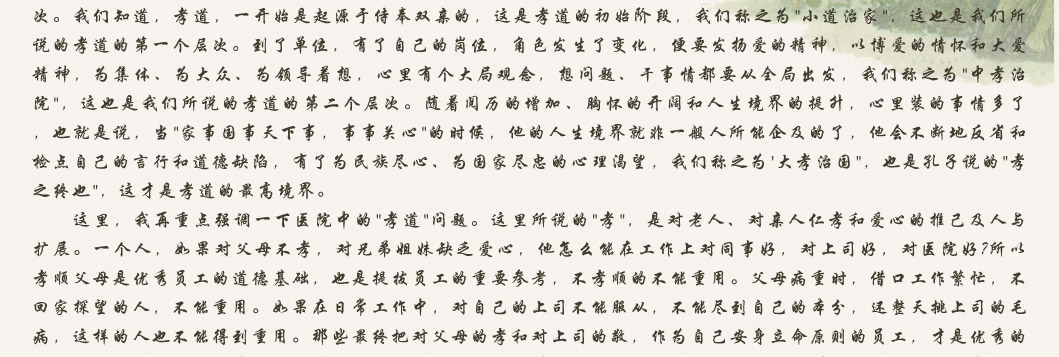 次。我们知道，孝道，一开始是起源于侍奉双亲的，这是孝道的初始阶段，我们称之为"小道治家"，这也是我们所
说的孝道的第一个层次。到了单位，有了自己的岗位，角色发生了变化，便要发扬爱的精神，以博爱的情怀和大爱
精神，为集体、为大众、为领导着想，心里有个大局观念，想问题、干事情都要从全局出发，我们称之为"中孝治
院"，这也是我们所说的孝道的第二个层次。随着阅历的增加、胸怀的开阔和人生境界的提升，心里装的事情多了
，也就是说，当"家事国事天下事，事事关心"的时候，他的人生境界就非一般人所能企及的了，他会不断地反省和
检点自己的言行和道德缺陷，有了为民族尽心、为国家尽忠的心理渴望，我们称之为'大孝治国"，也是孔子说的"孝
之终也"，这才是孝道的最高境界。
这里，我再重点强调一下医院中的"孝道"问题。这里所说的"孝"，是对老人、对亲人仁孝和爱心的推己及人与
扩展。一个人，如果对父母不孝，对兄弟姐妹缺乏爱心，他怎么能在工作上对同事好，对上司好，对医院好?所以
孝顺父母是优秀员工的道德基础，也是提拔员工的重要参考，不孝顺的不能重用。父母病重时，借口工作繁忙，不
回家探望的人，不能重用。如果在日常工作中，对自己的上司不能服从，不能尽到自己的本分，还整天挑上司的毛
病，这样的人也不能得到重用。那些最终把对父母的孝和对上司的敬，作为自己安身立命原则的员工，才是优秀的